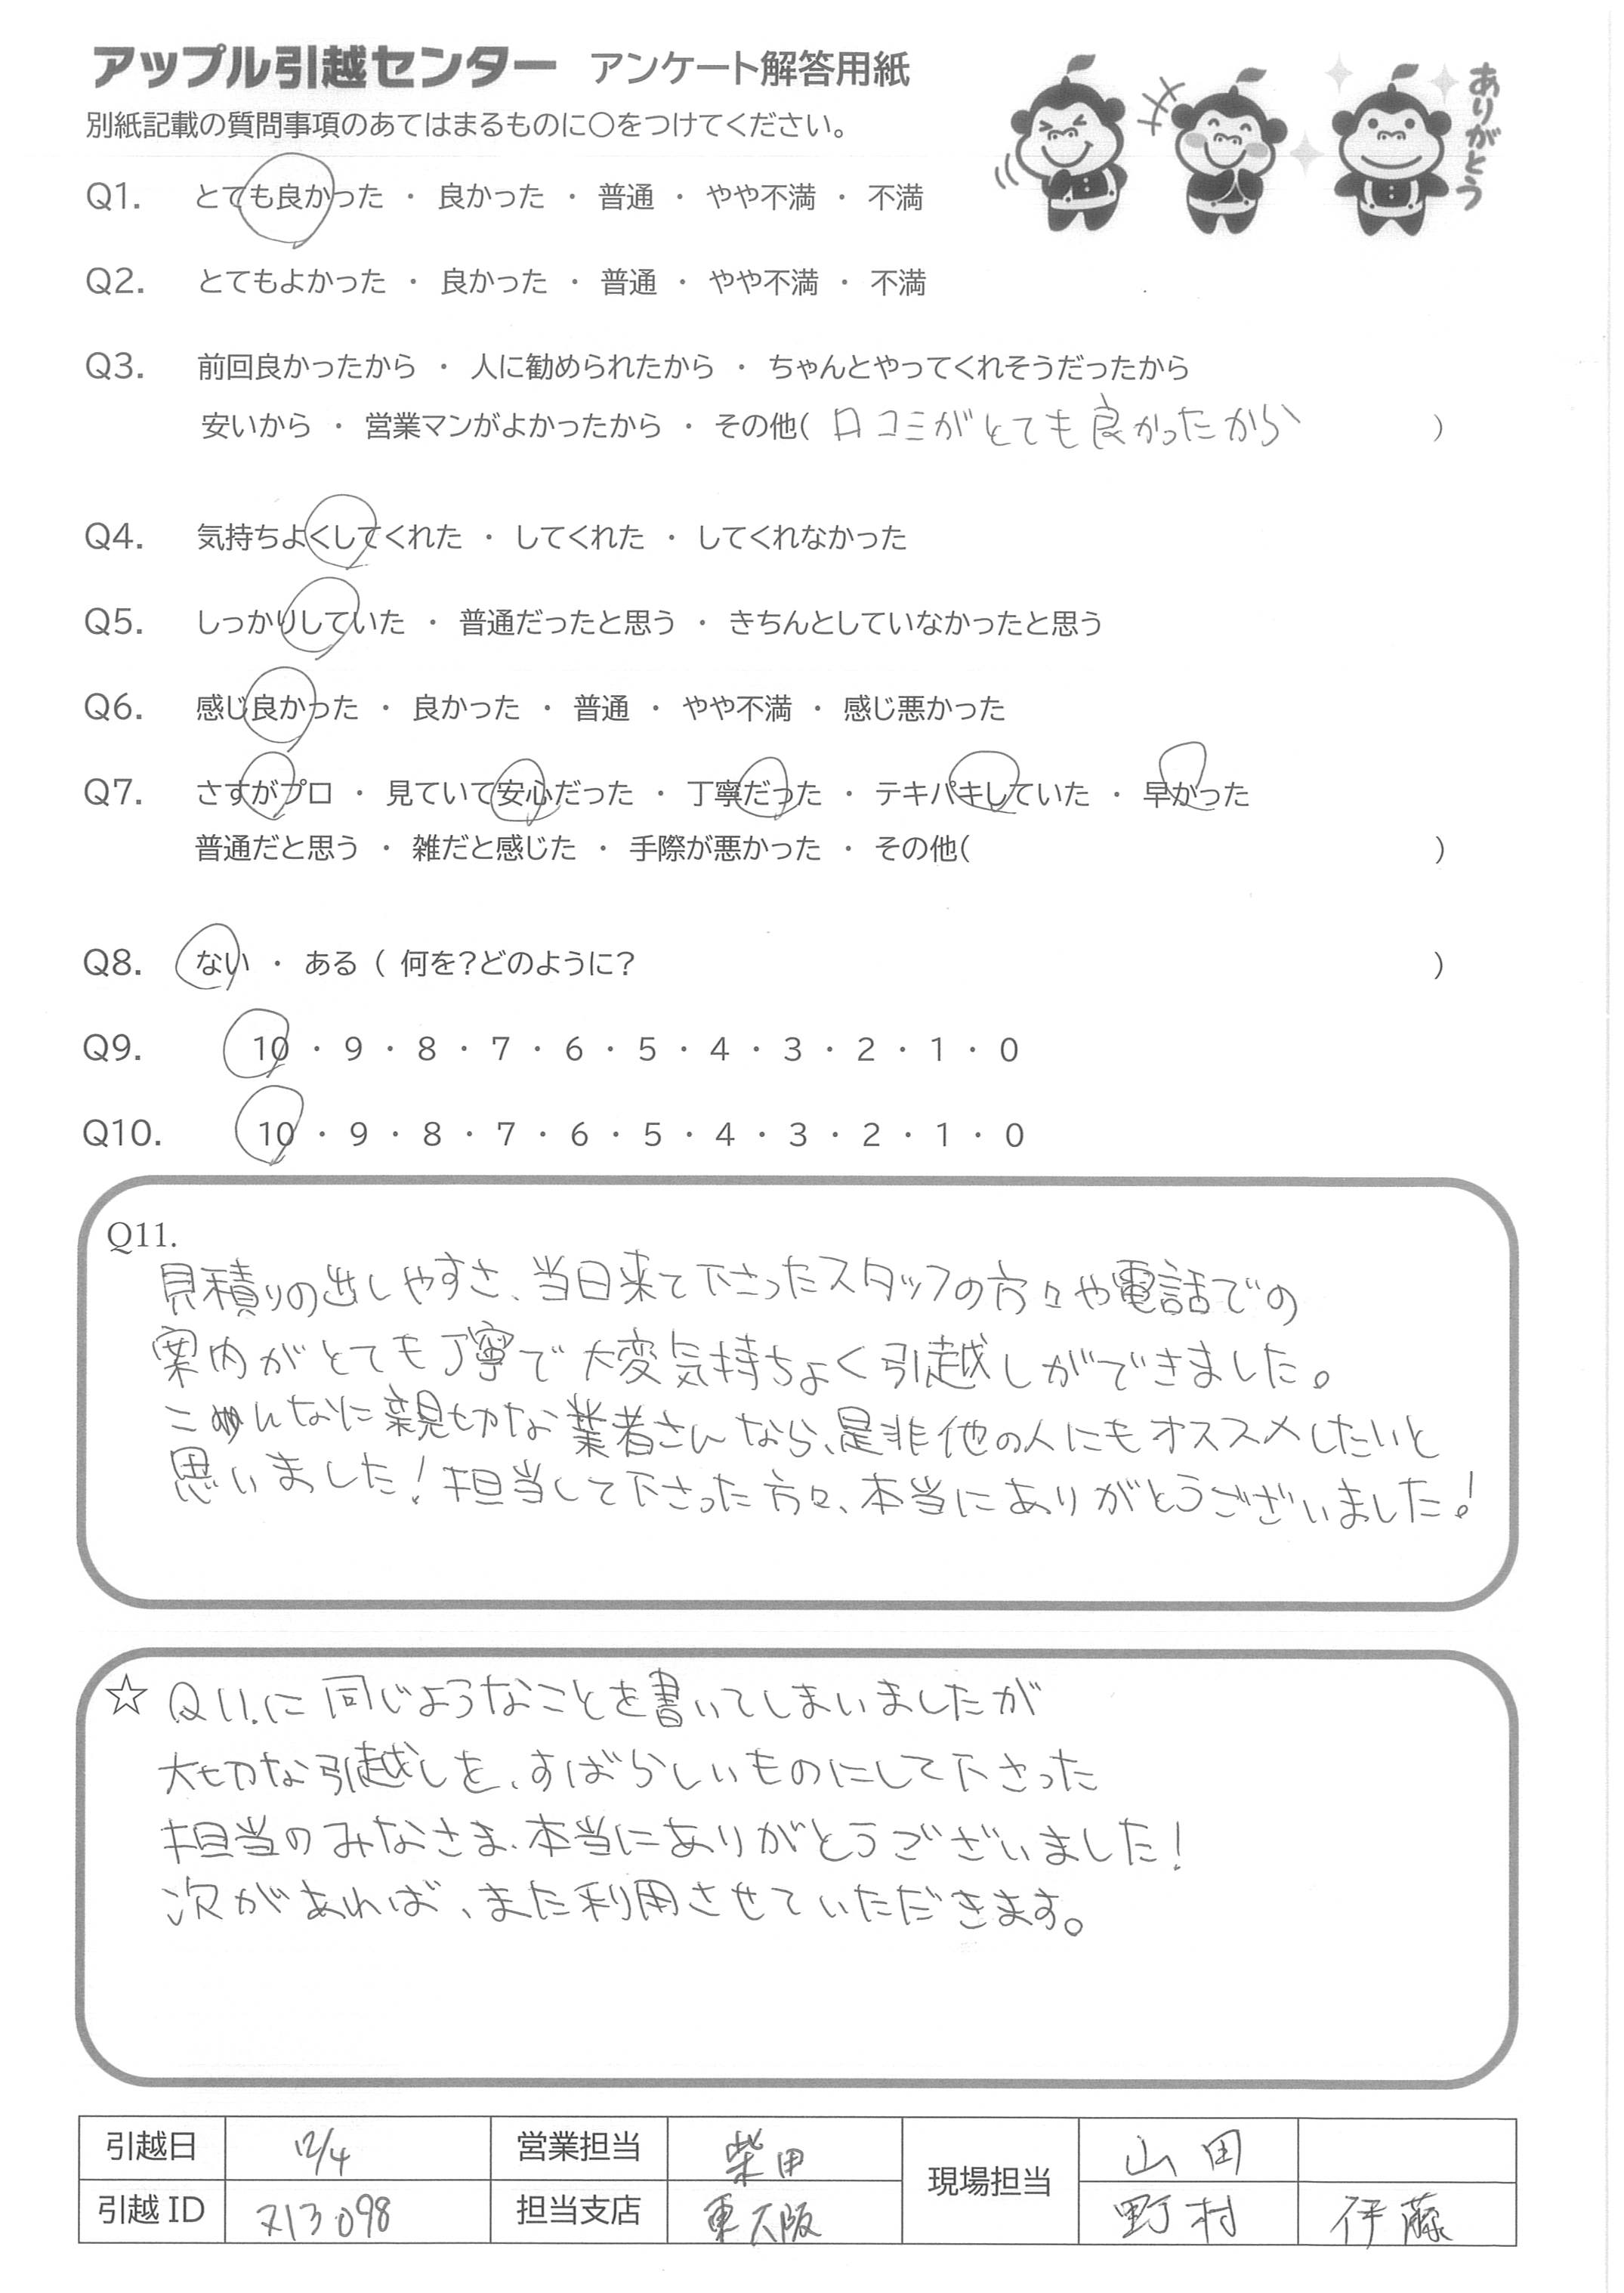 アップル引越センター アンケート解答用紙
ありがとう
別紙記載の質問事項のあてはまるものに〇をつけてください。
Q1. とても良かった ・ 良かった ・ 普通 ・ やや不満 ・ 不満
Q2. とてもよかった ・ 良かった ・ 普通 ・ やや不満 ・ 不満
Q3. 前回良かったから ・ 人に勧められたから ・ ちゃんとやってくれそうだったから
安いから ・ 営業マンがよかったから ・ その他( 口コミがとても良かったから )
Q4. 気持ちよくしてくれた ・ してくれた ・ してくれなかった
Q5. しっかりしていた ・ 普通だったと思う ・ きちんとしていなかったと思う
Q6. 感じ良かった ・ 良かった ・ 普通 ・ やや不満 ・ 感じ悪かった
Q7. さすがプロ ・ 見ていて安心だった ・ 丁寧だった ・ テキパキしていた ・ 早かった
普通だと思う ・ 雑だと感じた ・ 手際が悪かった ・ その他( )
Q8. ない ・ ある ( 何を?どのように? )
Q9. 10 ・ 9 ・ 8 ・ 7 ・ 6 ・ 5 ・ 4 ・ 3 ・ 2 ・ 1 ・ 0
Q10. 10 ・ 9 ・ 8 ・ 7 ・ 6 ・ 5 ・ 4 ・ 3 ・ 2 ・ 1 ・ 0
Q11.
見積りの出しやすさ、当日来て下さったスタッフの方々や電話での
案内がとても丁寧で大変気持ちよく引越しができました。
こんなに親切な業者さんなら、是非他の人にもオススメしたいと
思いました!担当して下さった方々、本当にありがとうございました!
☆ Q11.に同じようなことを書いてしまいましたが
大切な引越しを、すばらしいものにして下さった
担当のみなさま、本当にありがとうございました!
次があれば、また利用させていただきます。
引越日 12/4 営業担当 柴田 現場担当 山田
引越ID 713098 担当支店 東大阪 野村 伊藤